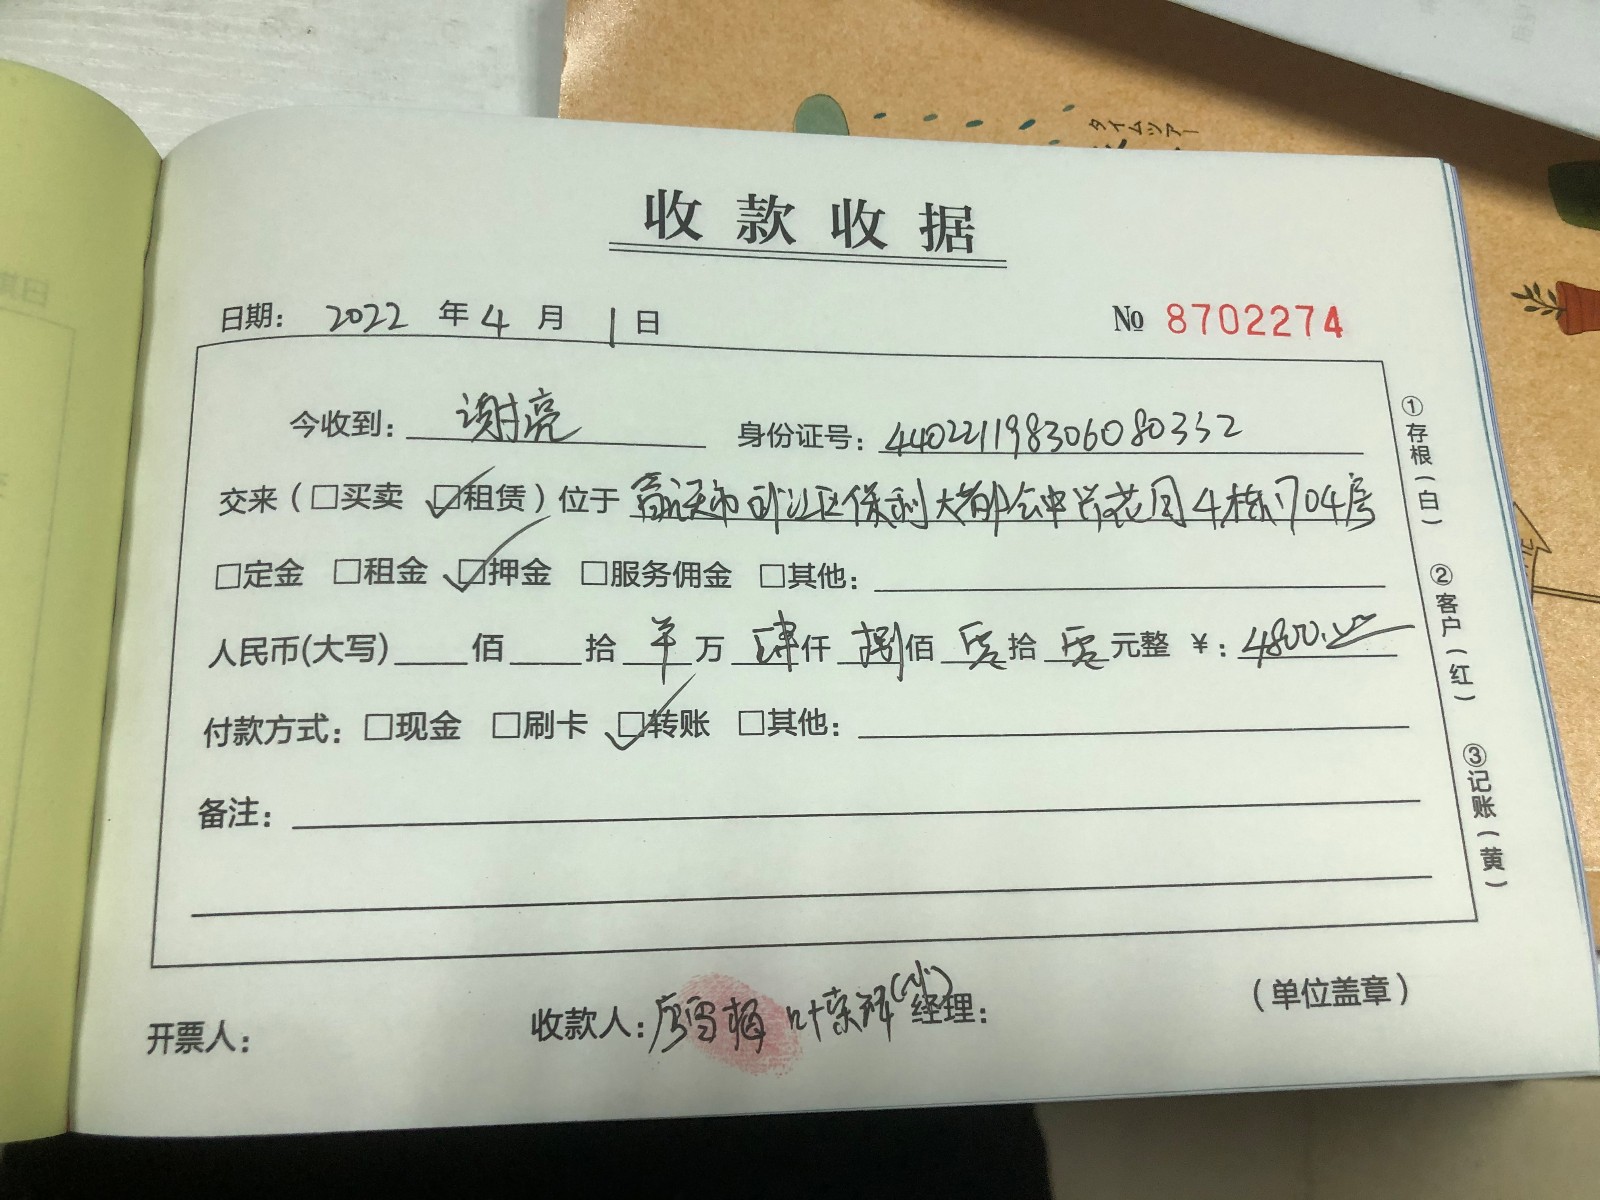 タイムツアー
收款收据
日期： 2022 年 4 月 1 日
№ 8702274
今收到： 谢亮 身份证号： 440221198306080332
交来（□买卖 ☑租赁）位于 市武江区保利大都会中兴花园4栋1704房
□定金 □租金 ☑押金 □服务佣金 □其他：
人民币(大写) 佰 拾 羊万 肆仟 捌佰 零拾 零元整 ¥：4800.00
付款方式：□现金 □刷卡 ☑转账 □其他：
备注：
开票人： 收款人： 经理： （单位盖章）
①存根（白）
②客户（红）
③记账（黄）